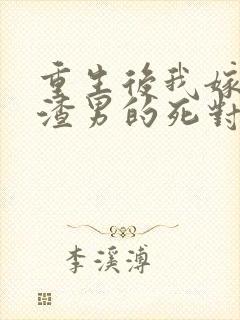 重生後我嫁
渣男的死對
李溪溥